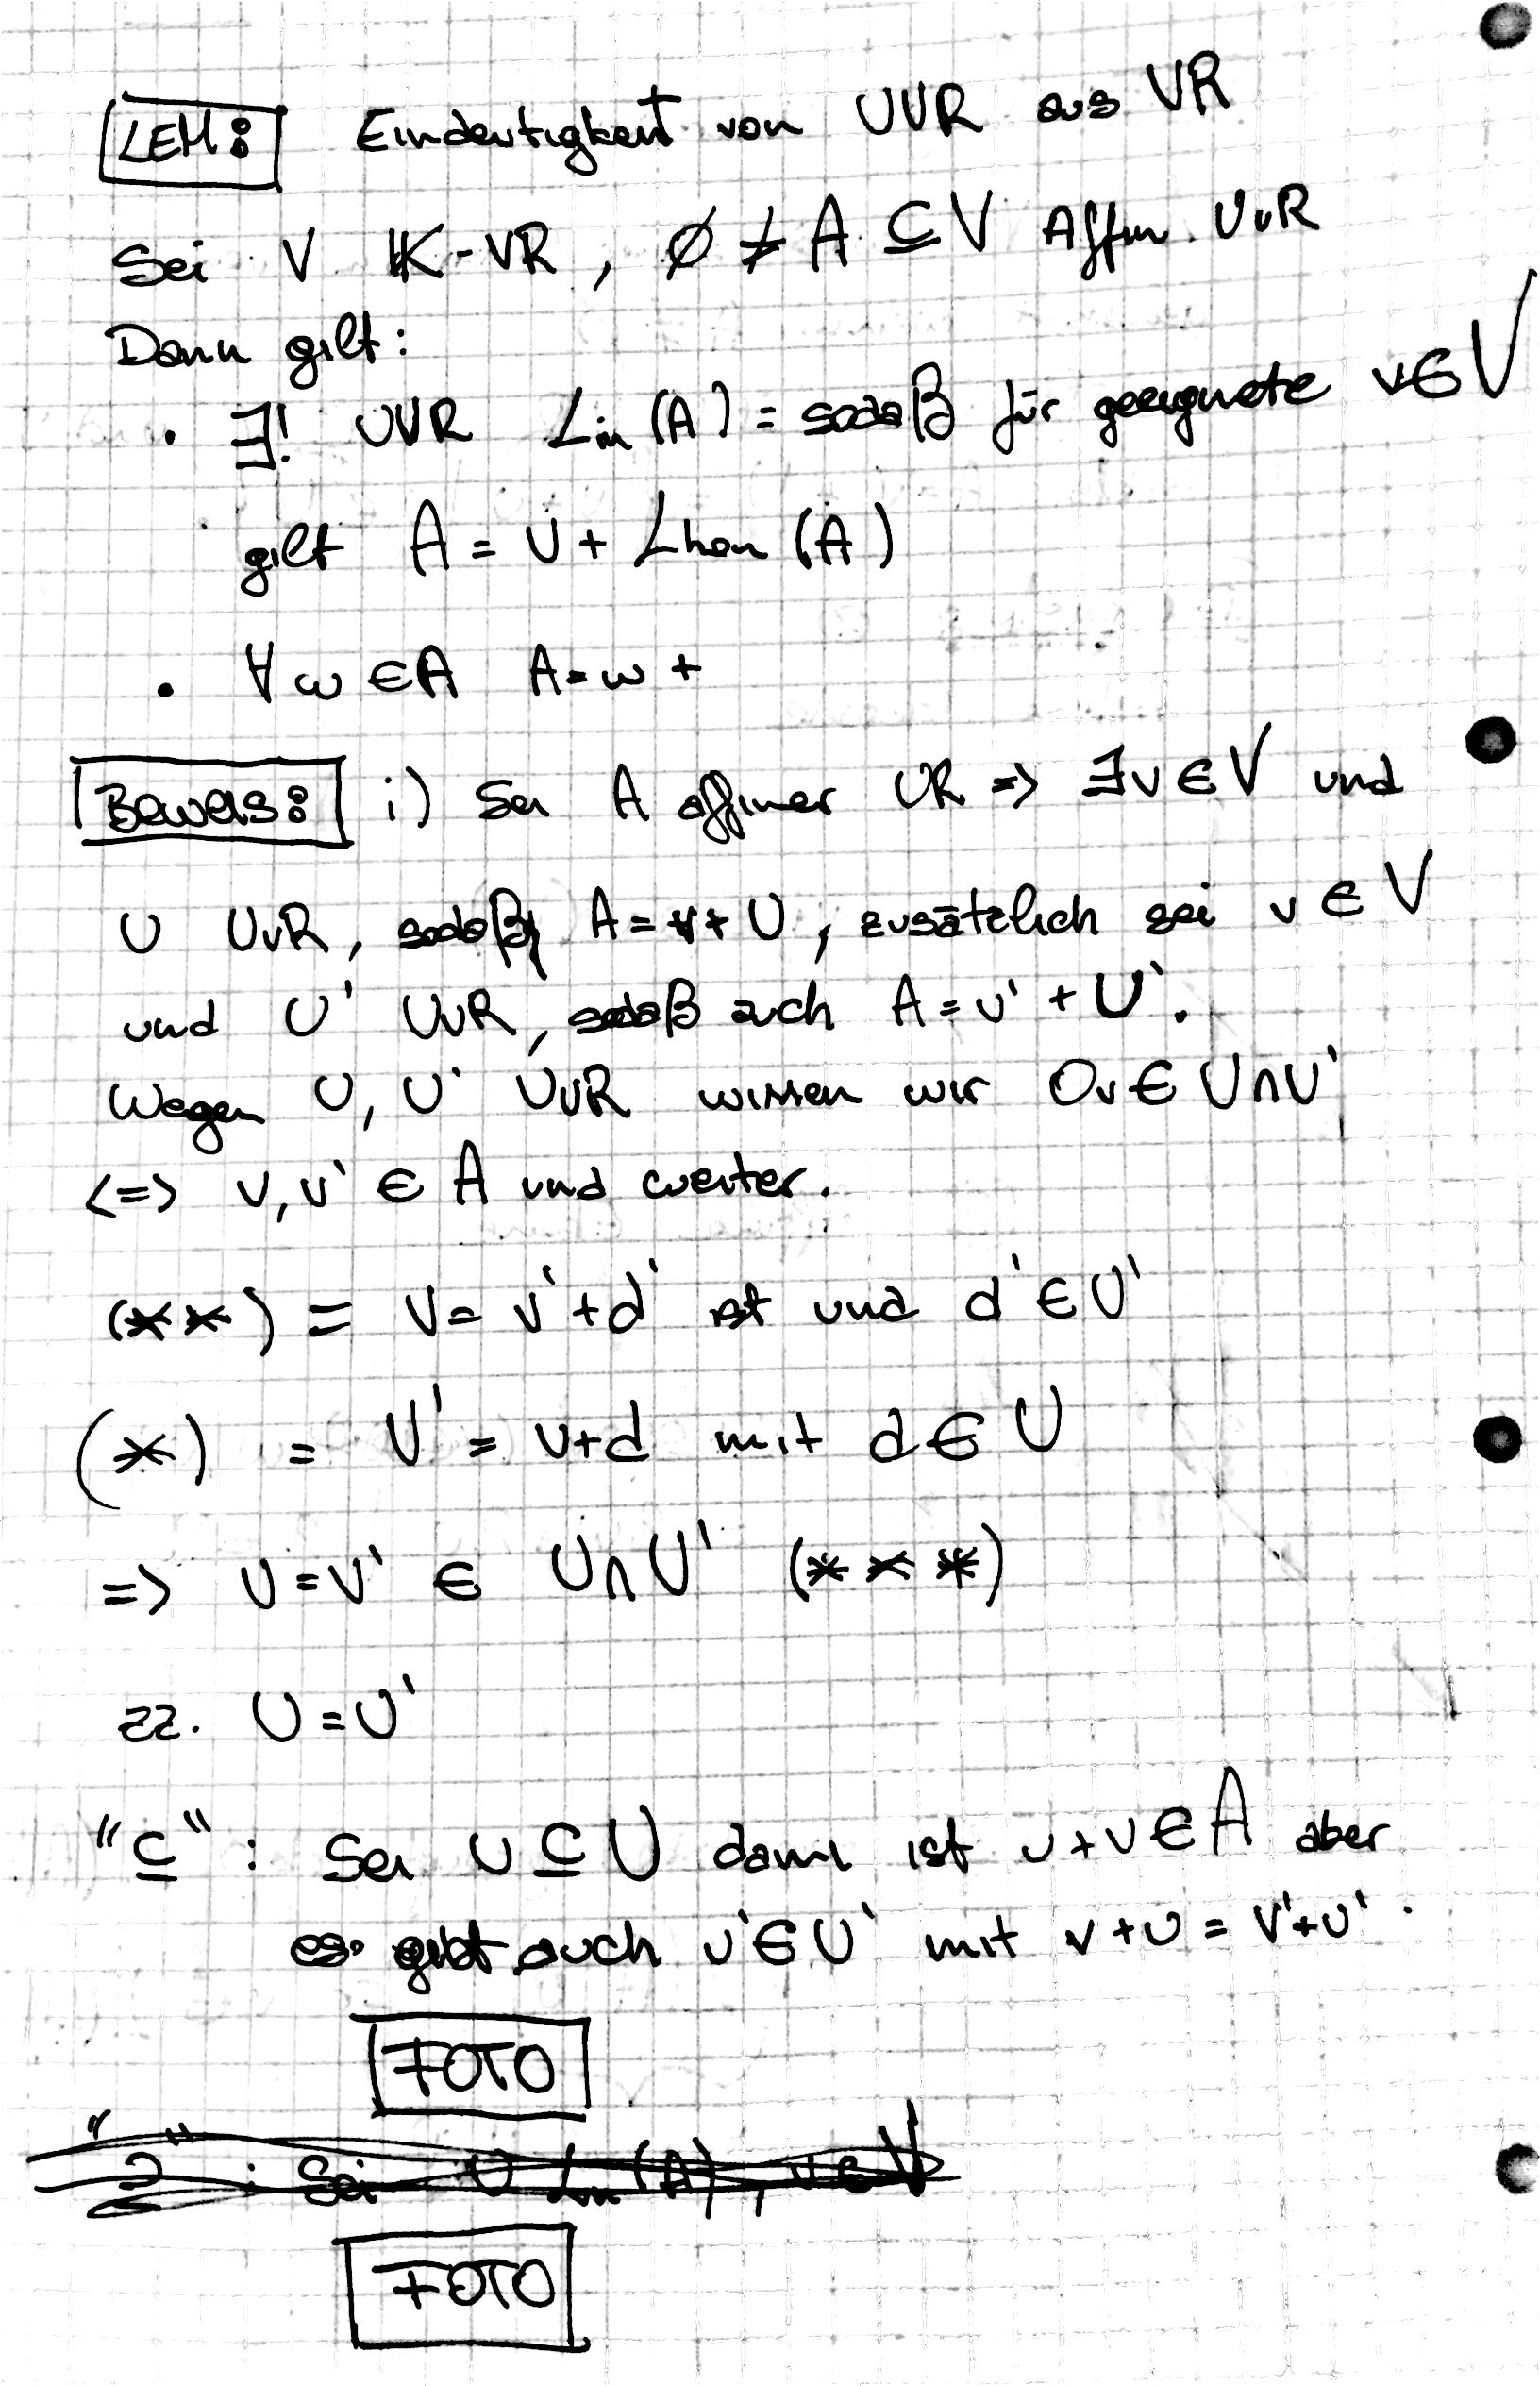 LEM: Eindeutigkeit von UVR aus VR
Sei V K-VR, ∅ ≠ A ⊆ V Affin. UvR
Dann gilt:
• ∃! UVR Lin (A) = sodaß für geeignete v ∈ V
gilt A = v + Lhom (A)
• ∀ w ∈ A A = w +
Beweis: i) Sei A affiner UR => ∃ v ∈ V und
U UvR, sodaß A = v + U, zusätzlich sei v ∈ V
und U' UVR, sodaß auch A = v' + U'.
Wegen U, U' UVR wissen wir 0v ∈ U ∩ U'
<=> v, v' ∈ A und weiter.
(**) = v = v' + d' ist und d' ∈ U'
(*) = v' = v + d mit d ∈ U
=> v = v' ∈ U ∩ U' (***)
zz. U = U'
"⊆": Sei u ⊆ U dann ist v + u ∈ A aber
es gibt auch u' ∈ U' mit v + u = v' + u'.
FOTO
"⊇": Sei U Lin (A), v ∈ V
FOTO